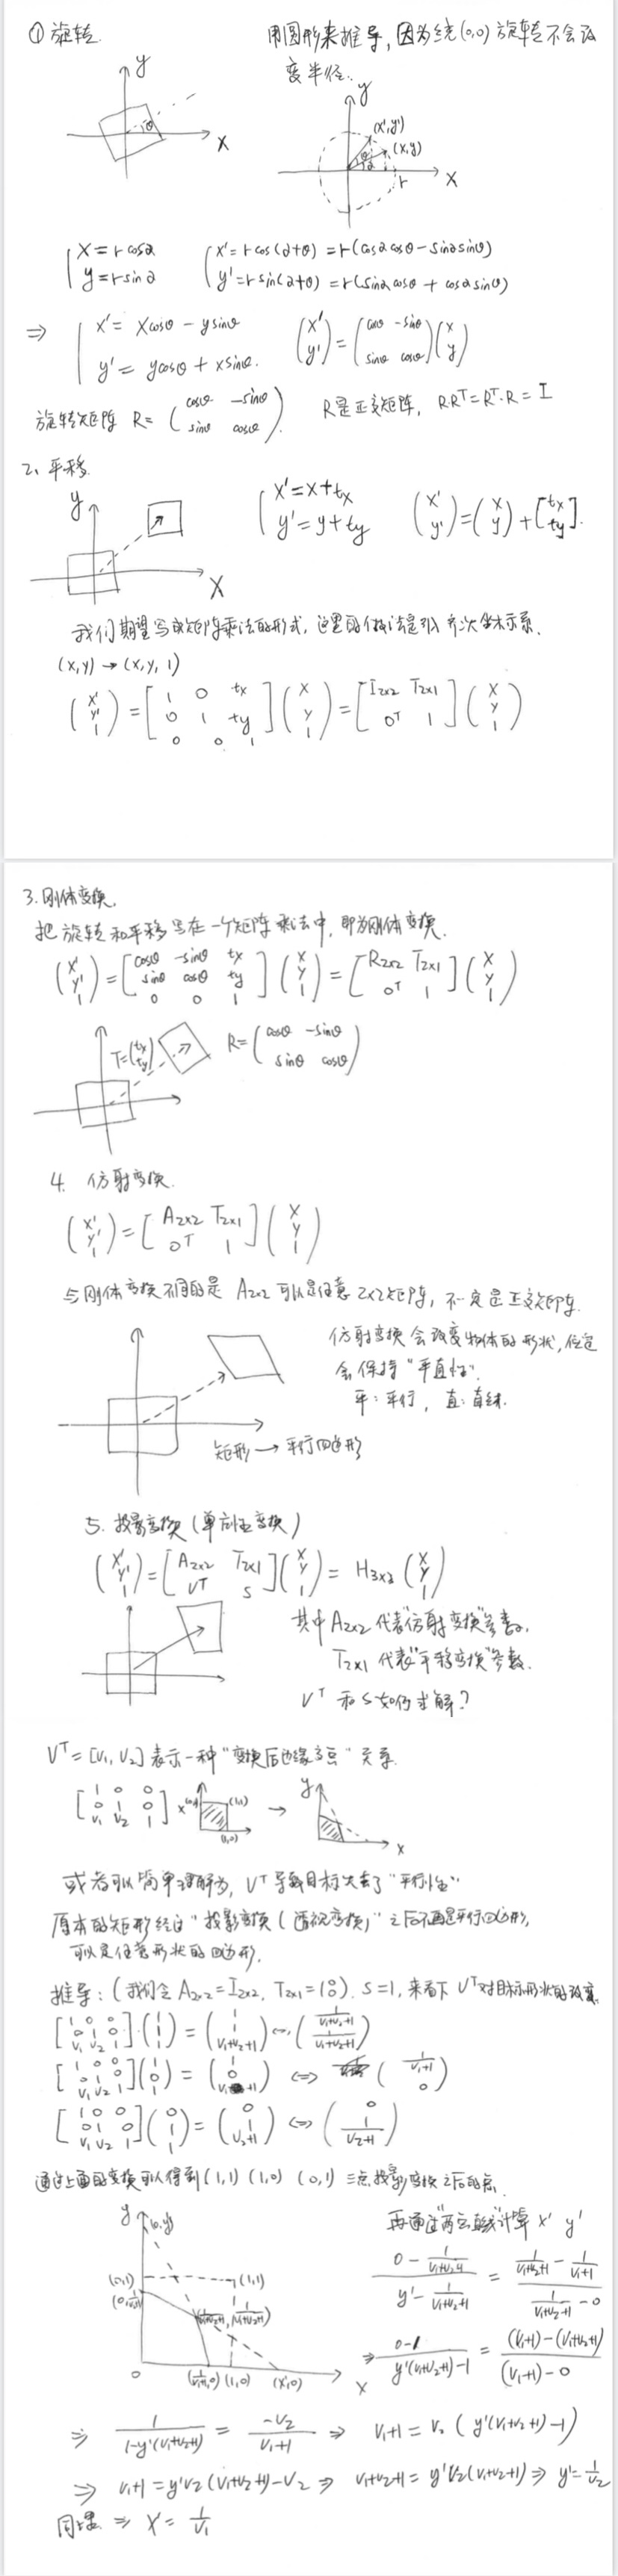 ① 旋转.
用圆形来推导, 因为绕(0,0)旋转不会改
变半径.
y
x
θ
y
(x',y')
(x,y)
θ
α
r
x
{ x = r cosα
y = r sinα
{ x' = r cos(α+θ) = r(cosαcosθ - sinαsinθ)
y' = r sin(α+θ) = r(sinαcosθ + cosαsinθ)
⇒ { x' = xcosθ - ysinθ
y' = ycosθ + xsinθ.
(x' y') = (cosθ -sinθ sinθ cosθ)(x y)
旋转矩阵 R = (cosθ -sinθ sinθ cosθ). R是正交矩阵, R·Rᵀ = Rᵀ·R = I
2、平移.
y
x
{ x' = x + tx
y' = y + ty
(x' y') = (x y) + [tx ty].
我们期望写成矩阵乘法的形式, 这里的做法是引入齐次坐标系.
(x,y) → (x,y,1)
(x' y' 1) = [1 0 tx 0 1 ty 0 0 1](x y 1) = [I2x2 T2x1 0ᵀ 1](x y 1)
3.刚体变换.
把旋转和平移写在一个矩阵乘法中, 即为刚体变换.
(x' y' 1) = [cosθ -sinθ tx sinθ cosθ ty 0 0 1](x y 1) = [R2x2 T2x1 0ᵀ 1](x y 1)
T=(tx ty)
R = (cosθ -sinθ sinθ cosθ)
4. 仿射变换.
(x' y' 1) = [A2x2 T2x1 0ᵀ 1](x y 1)
与刚体变换不同的是 A2x2 可以是任意2x2矩阵, 不一定是正交矩阵.
仿射变换会改变物体的形状, 但是
会保持“平直性”.
平: 平行, 直: 直线.
矩形 → 平行四边形
5. 投影变换(单应性变换)
(x' y' 1) = [A2x2 T2x1 Vᵀ S](x y 1) = H3x3 (x y 1)
其中A2x2 代表“仿射变换”参数,
T2x1 代表“平移变换”参数.
Vᵀ 和 S 如何求解?
Vᵀ = [V₁, V₂] 表示一种“变换后边缘交点”关系.
[1 0 0 0 1 0 V₁ V₂ 1] ×
(0,1)
(1,1)
(1,0)
→
y
x
或者可以简单理解为, Vᵀ 导致目标失去了“平行性”
原本的矩形经过“投影变换(透视变换)”之后不再是平行四边形,
可以是任意形状的四边形.
推导: (我们令 A2x2 = I2x2, T2x1 = (0 0). S=1, 来看下 Vᵀ对目标形状的改变.
[1 0 0 0 1 0 V₁ V₂ 1]·(1 1 1) = (1 1 V₁+V₂+1) ⇔ (1/(V₁+V₂+1) 1/(V₁+V₂+1))
[1 0 0 0 1 0 V₁ V₂ 1](1 0 1) = (1 0 V₁+1) ⇔ (1/(V₁+1) 0)
[1 0 0 0 1 0 V₁ V₂ 1](0 1 1) = (0 1 V₂+1) ⇔ (0 1/(V₂+1))
通过上面的变换可以得到(1,1) (1,0) (0,1) 三点投影变换之后的点.
再通过“两点直线”计算 x' y'
y
(0,y')
(0,1)
(1,1)
(0,1/(V₂+1))
(1/(V₁+V₂+1), 1/(V₁+V₂+1))
0
(1/(V₁+1),0)
(1,0)
(x',0)
x
(0 - 1/(V₁+V₂+1))/(y' - 1/(V₁+V₂+1)) = (1/(V₁+V₂+1) - 1/(V₁+1))/(1/(V₁+V₂+1) - 0)
⇒ (0-1)/(y'(V₁+V₂+1)-1) = ((V₁+1)-(V₁+V₂+1))/((V₁+1)-0)
⇒ 1/(1-y'(V₁+V₂+1)) = -V₂/(V₁+1) ⇒ V₁+1 = V₂(y'(V₁+V₂+1)-1)
⇒ V₁+1 = y'V₂(V₁+V₂+1)-V₂ ⇒ V₁+V₂+1 = y'V₂(V₁+V₂+1) ⇒ y' = 1/V₂
同理 ⇒ x' = 1/V₁